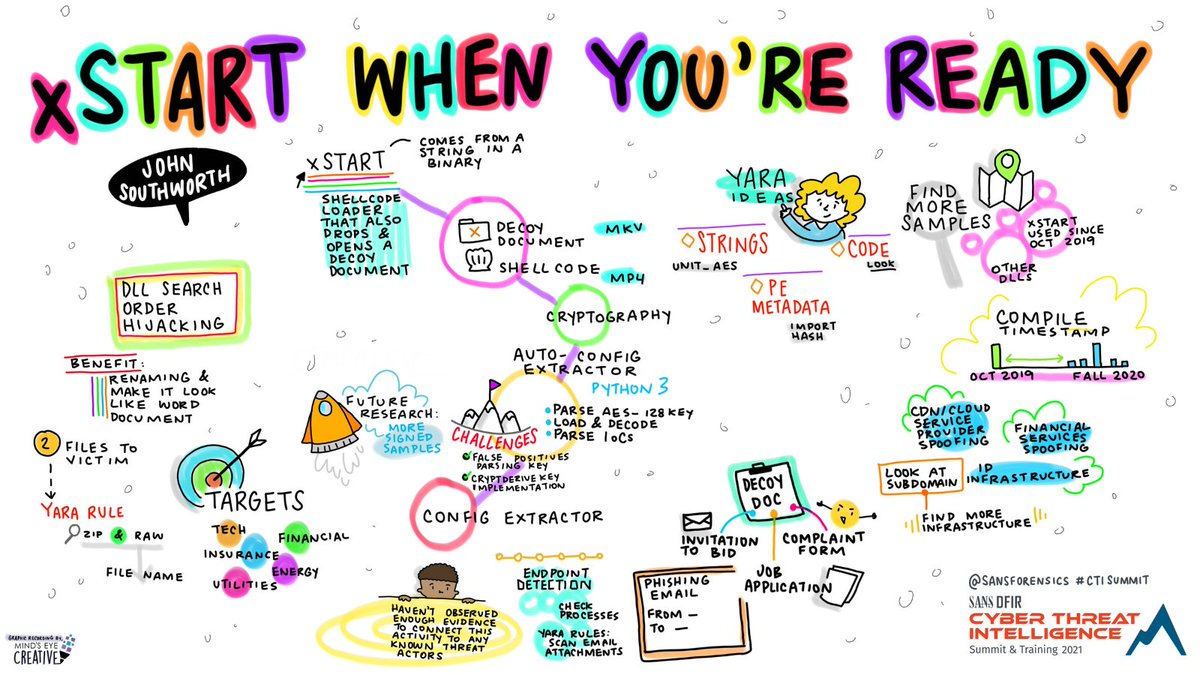 xSTART WHEN YOU'RE READY
JOHN
SOUTHWORTH
xSTART
COMES FROM A
STRING IN A
BINARY
SHELLCODE
LOADER
THAT ALSO
DROPS &
OPENS A
DECOY
DOCUMENT
DECOY
DOCUMENT
MKV
SHELLCODE
MP4
CRYPTOGRAPHY
AUTO-CONFIG
EXTRACTOR
PYTHON 3
PARSE AES-128 KEY
LOAD & DECODE
PARSE IOCS
CHALLENGES
FALSE POSITIVES
PARSING KEY
CRYPTDERIVEKEY
IMPLEMENTATION
CONFIG EXTRACTOR
FUTURE
RESEARCH:
MORE
SIGNED
SAMPLES
DLL SEARCH
ORDER
HIJACKING
BENEFIT:
RENAMING &
MAKE IT LOOK
LIKE WORD
DOCUMENT
2
FILES TO
VICTIM
YARA RULE
ZIP & RAW
FILE NAME
TARGETS
TECH
FINANCIAL
INSURANCE
ENERGY
UTILITIES
HAVEN'T OBSERVED
ENOUGH EVIDENCE
TO CONNECT THIS
ACTIVITY TO ANY
KNOWN THREAT
ACTORS
ENDPOINT
DETECTION
CHECK
PROCESSES
YARA RULES:
SCAN EMAIL
ATTACHMENTS
YARA
IDEAS
STRINGS
UNIT_AES
CODE
LOOK
PE
METADATA
IMPORT
HASH
FIND
MORE
SAMPLES
XSTART
USED SINCE
OCT 2019
OTHER
DLLS
COMPILE
TIMESTAMP
OCT 2019
FALL 2020
CDN/CLOUD
SERVICE
PROVIDER
SPOOFING
FINANCIAL
SERVICES
SPOOFING
LOOK AT
SUBDOMAIN
IP
INFRASTRUCTURE
FIND MORE
INFRASTRUCTURE
DECOY
DOC
INVITATION
TO BID
JOB
APPLICATION
COMPLAINT
FORM
PHISHING
EMAIL
FROM —
TO —
@SANSFORENSICS #CTISUMMIT
SANS DFIR
CYBER THREAT
INTELLIGENCE
Summit & Training 2021
GRAPHIC RECORDING BY:
MIND'S EYE
CREATIVE